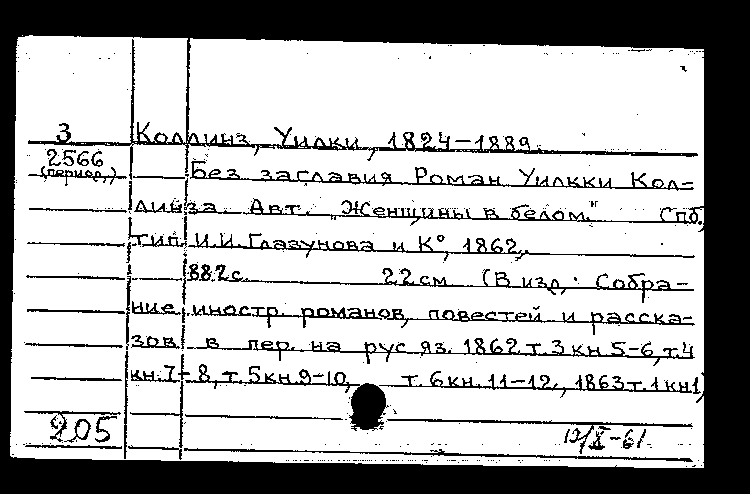 3 Коллинз, Уилки, 1824-1889.
2566 Без заглавия Роман Уилкки Кол=
(период.) линза. Авт. „Женщины в белом." Спб,
тип. И.И. Глазунова и К°, 1862,
882 с. 22 см (В изд.: Собра-
ние иностр. романов, повестей и расска-
зов в пер. на рус яз. 1862 т. 3 кн 5-6, т.4
кн. 7-8, т. 5 кн. 9-10, т. 6 кн. 11-12., 1863 т. 1 кн1)
205 19/X-61